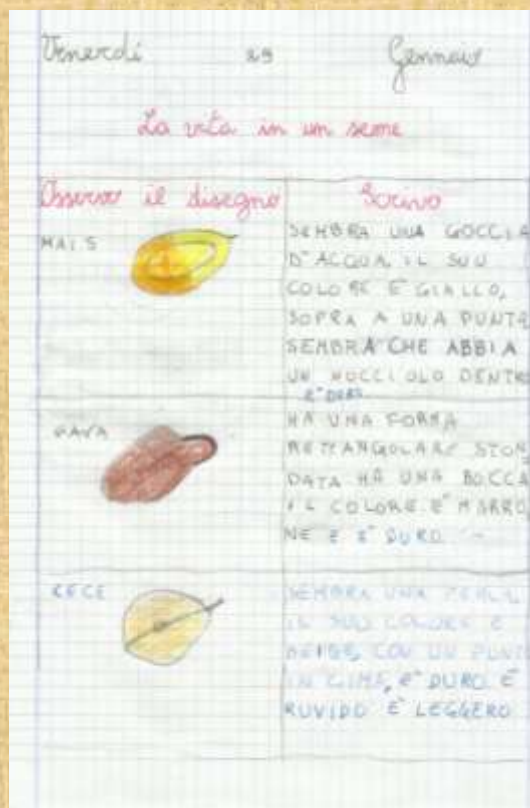 Venerdì 29 Gennaio
La vita in un seme
Osservo il disegno
Scrivo
MAIS
SEMBRA UNA GOCCIA
D'ACQUA, IL SUO
COLORE È GIALLO,
SOPRA A UNA PUNTA
SEMBRA CHE ABBIA
UN NOCCIOLO DENTRO
E' DURO
FAVA
HA UNA FORMA
RETTANGOLARE STON
DATA HA UNA BOCCA
IL COLORE E' MARRO
NE E E' DURO
CECE
SEMBRA UNA PERLA,
IL SUO COLORE È
BEIGE, CON UN PUNT
IN CIMA, E' DURO E
RUVIDO E LEGGERO